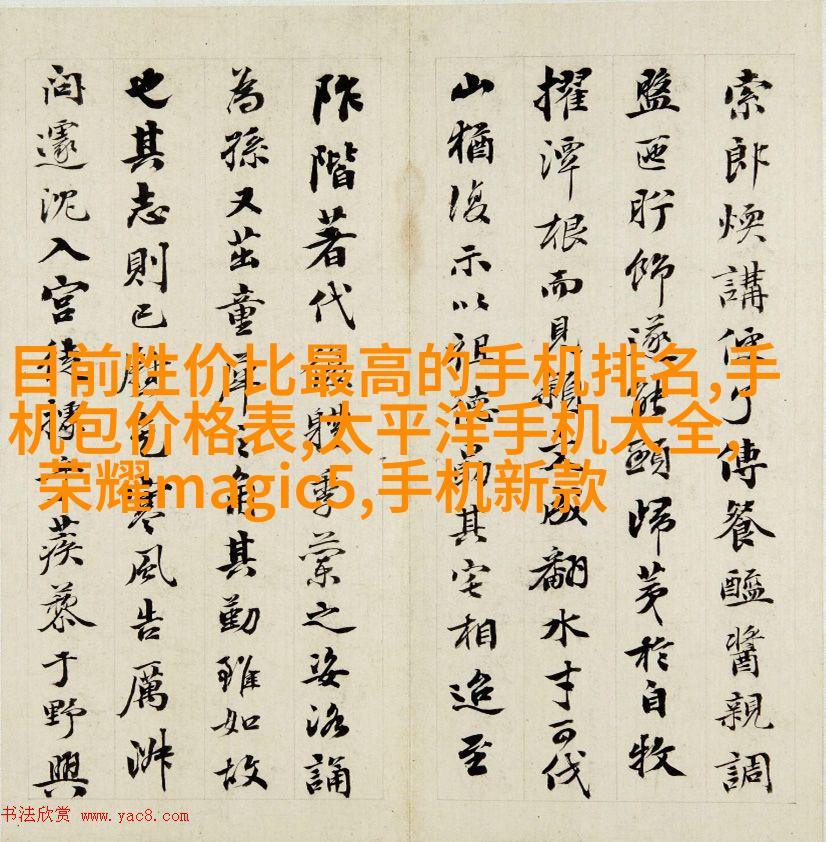 索郎煥講傳餐醯醬親調
盥匜貯飾遂能頤歸荑於自牧
擢潭根而見成翻水才可伐
山猶復示以德其宅相迨至
阼階著代季蘭之姿洛誦
為孫又茁童其勤雖如故
也其志則已寒風告厲
沈入宮蒺藜于野與
目前性价比最高的手机排名,手
机包价格表,太平洋手机大全,
荣耀magic5,手机新款
书法欣赏 www.yac8.com